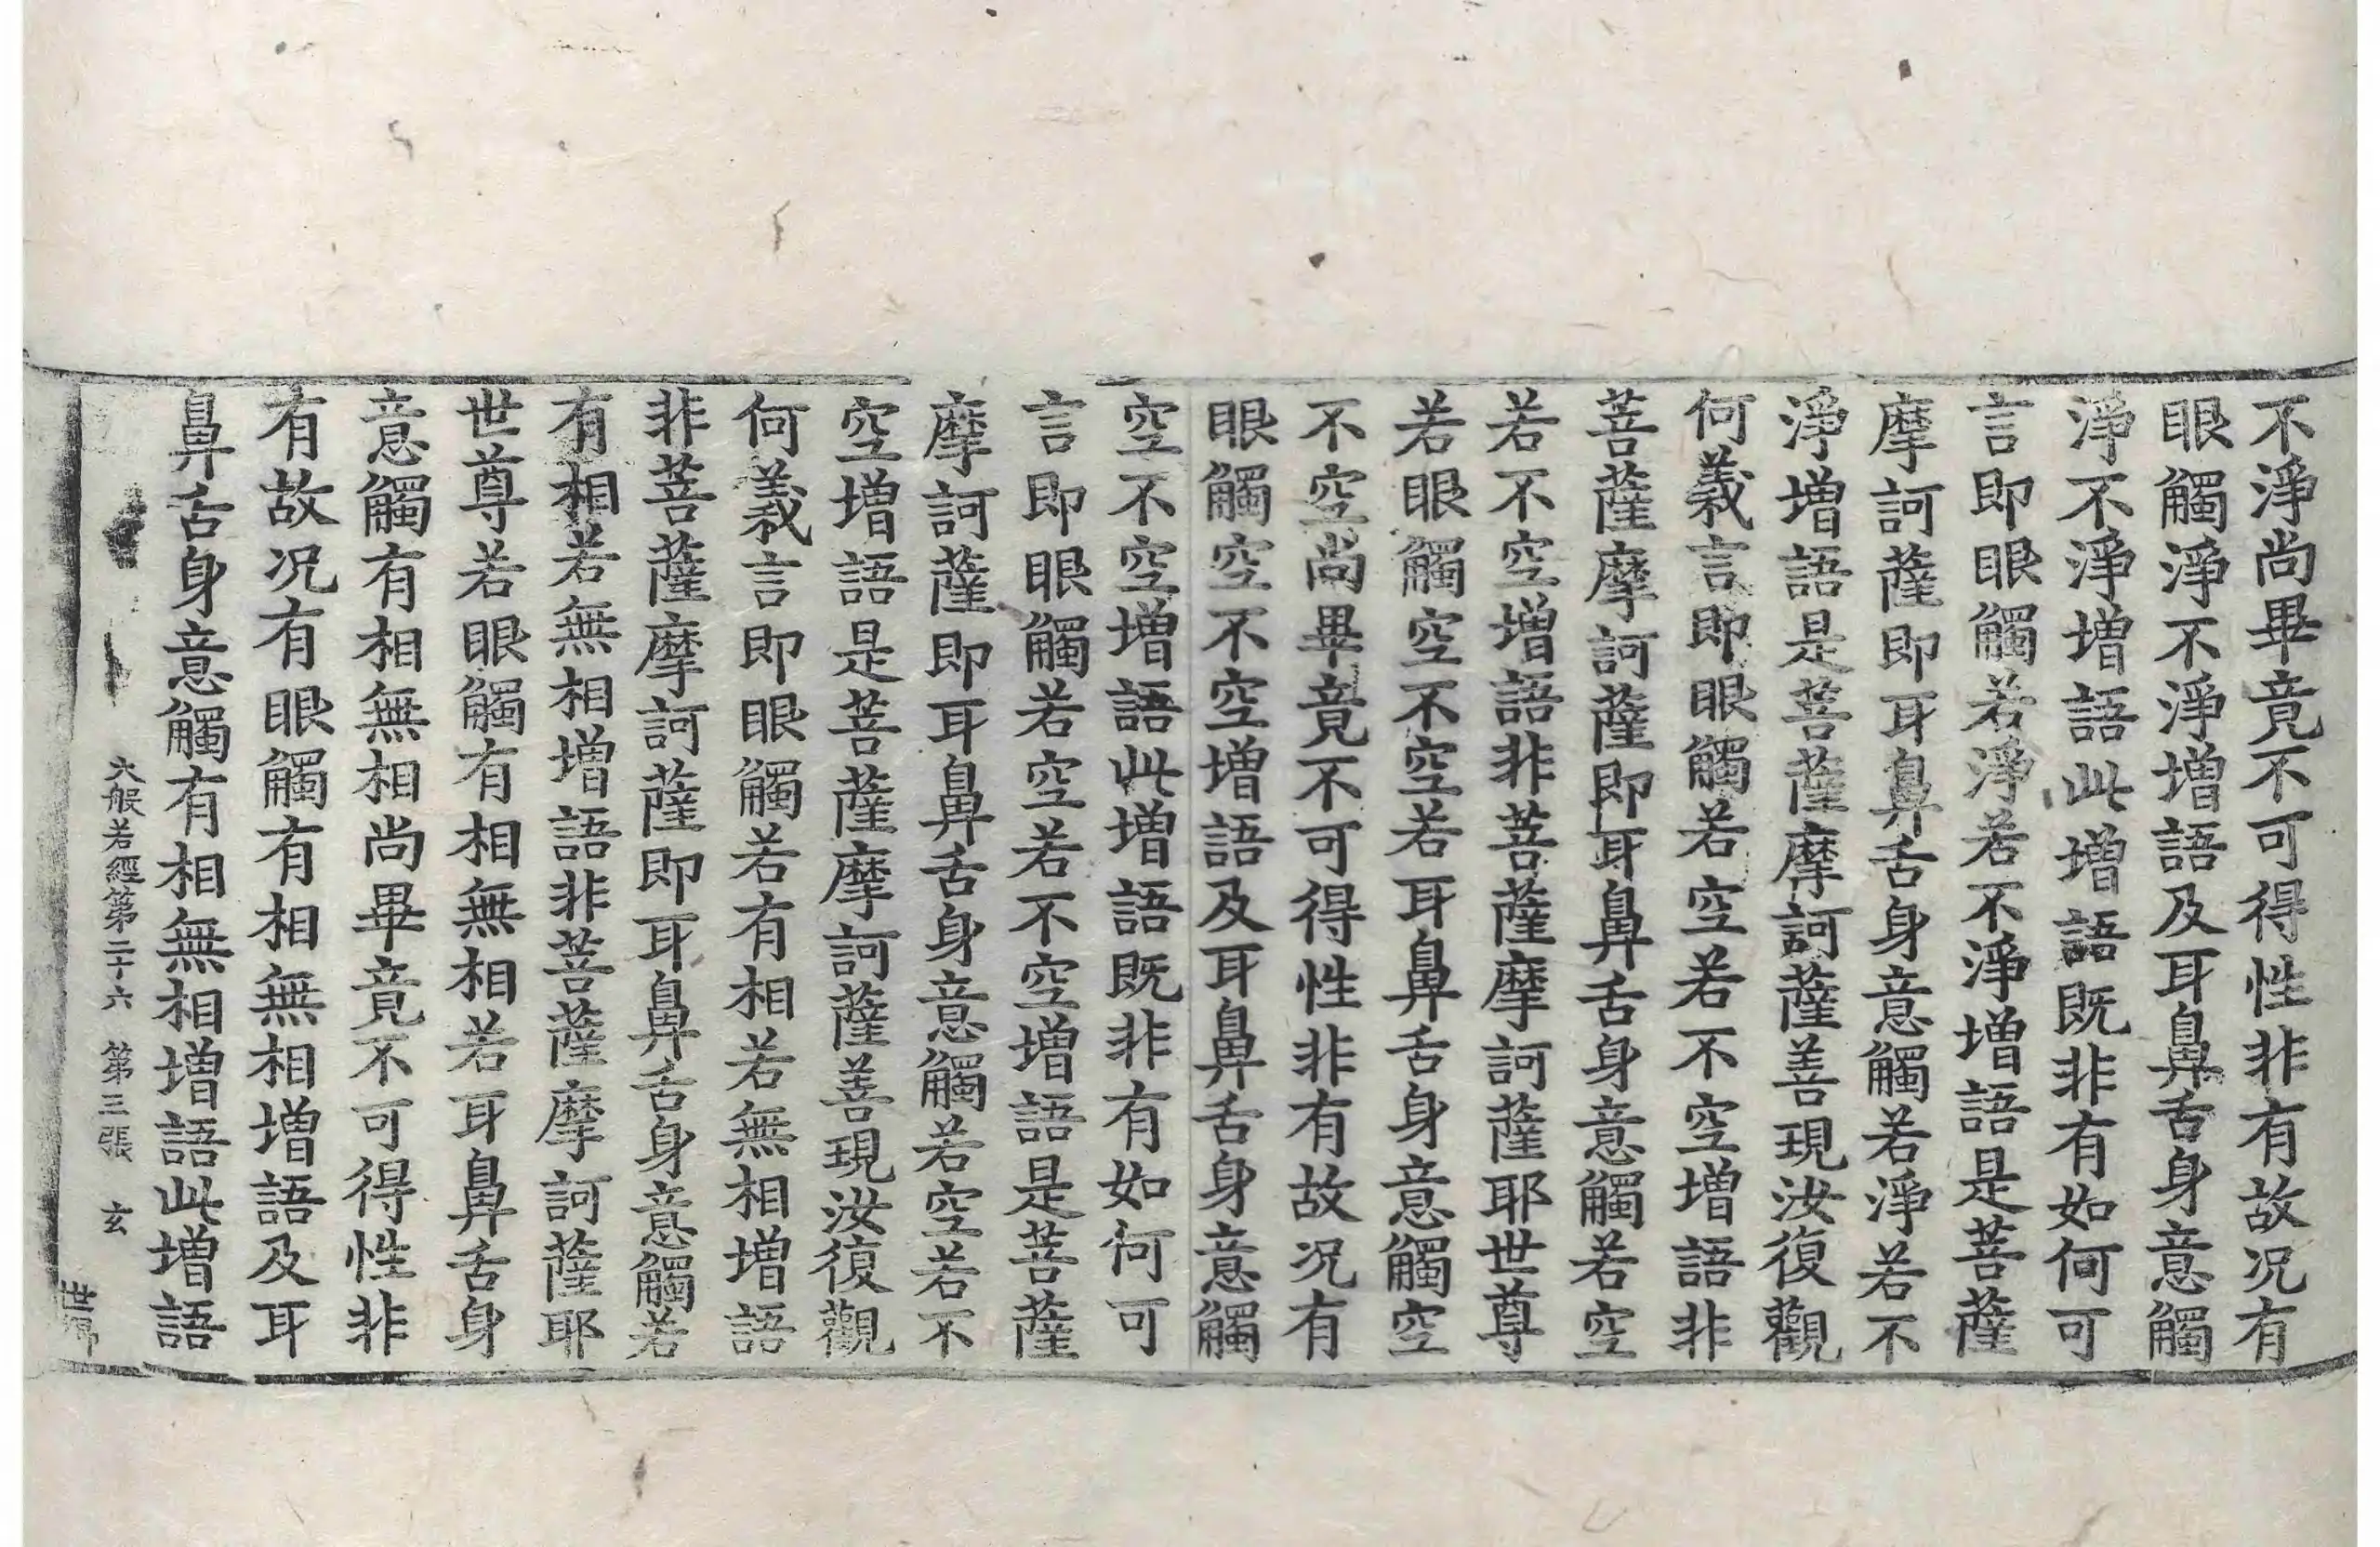 不淨尚畢竟不可得性非有故况有
眼觸淨不淨增語及耳鼻舌身意觸
淨不淨增語此增語既非有如何可
言即眼觸若淨若不淨增語是菩薩
摩訶薩即耳鼻舌身意觸若淨若不
淨增語是菩薩摩訶薩善現汝復觀
何義言即眼觸若空若不空增語非
菩薩摩訶薩即耳鼻舌身意觸若空
若不空增語非菩薩摩訶薩耶世尊
若眼觸空不空若耳鼻舌身意觸空
不空尚畢竟不可得性非有故况有
眼觸空不空增語及耳鼻舌身意觸
空不空增語此增語既非有如何可
言即眼觸若空若不空增語是菩薩
摩訶薩即耳鼻舌身意觸若空若不
空增語是菩薩摩訶薩善現汝復觀
何義言即眼觸若有相若無相增語
非菩薩摩訶薩即耳鼻舌身意觸若
有相若無相增語非菩薩摩訶薩耶
世尊若眼觸有相無相若耳鼻舌身
意觸有相無相尚畢竟不可得性非
有故况有眼觸有相無相增語及耳
鼻舌身意觸有相無相增語此增語
大般若經第二十六 第三張 玄